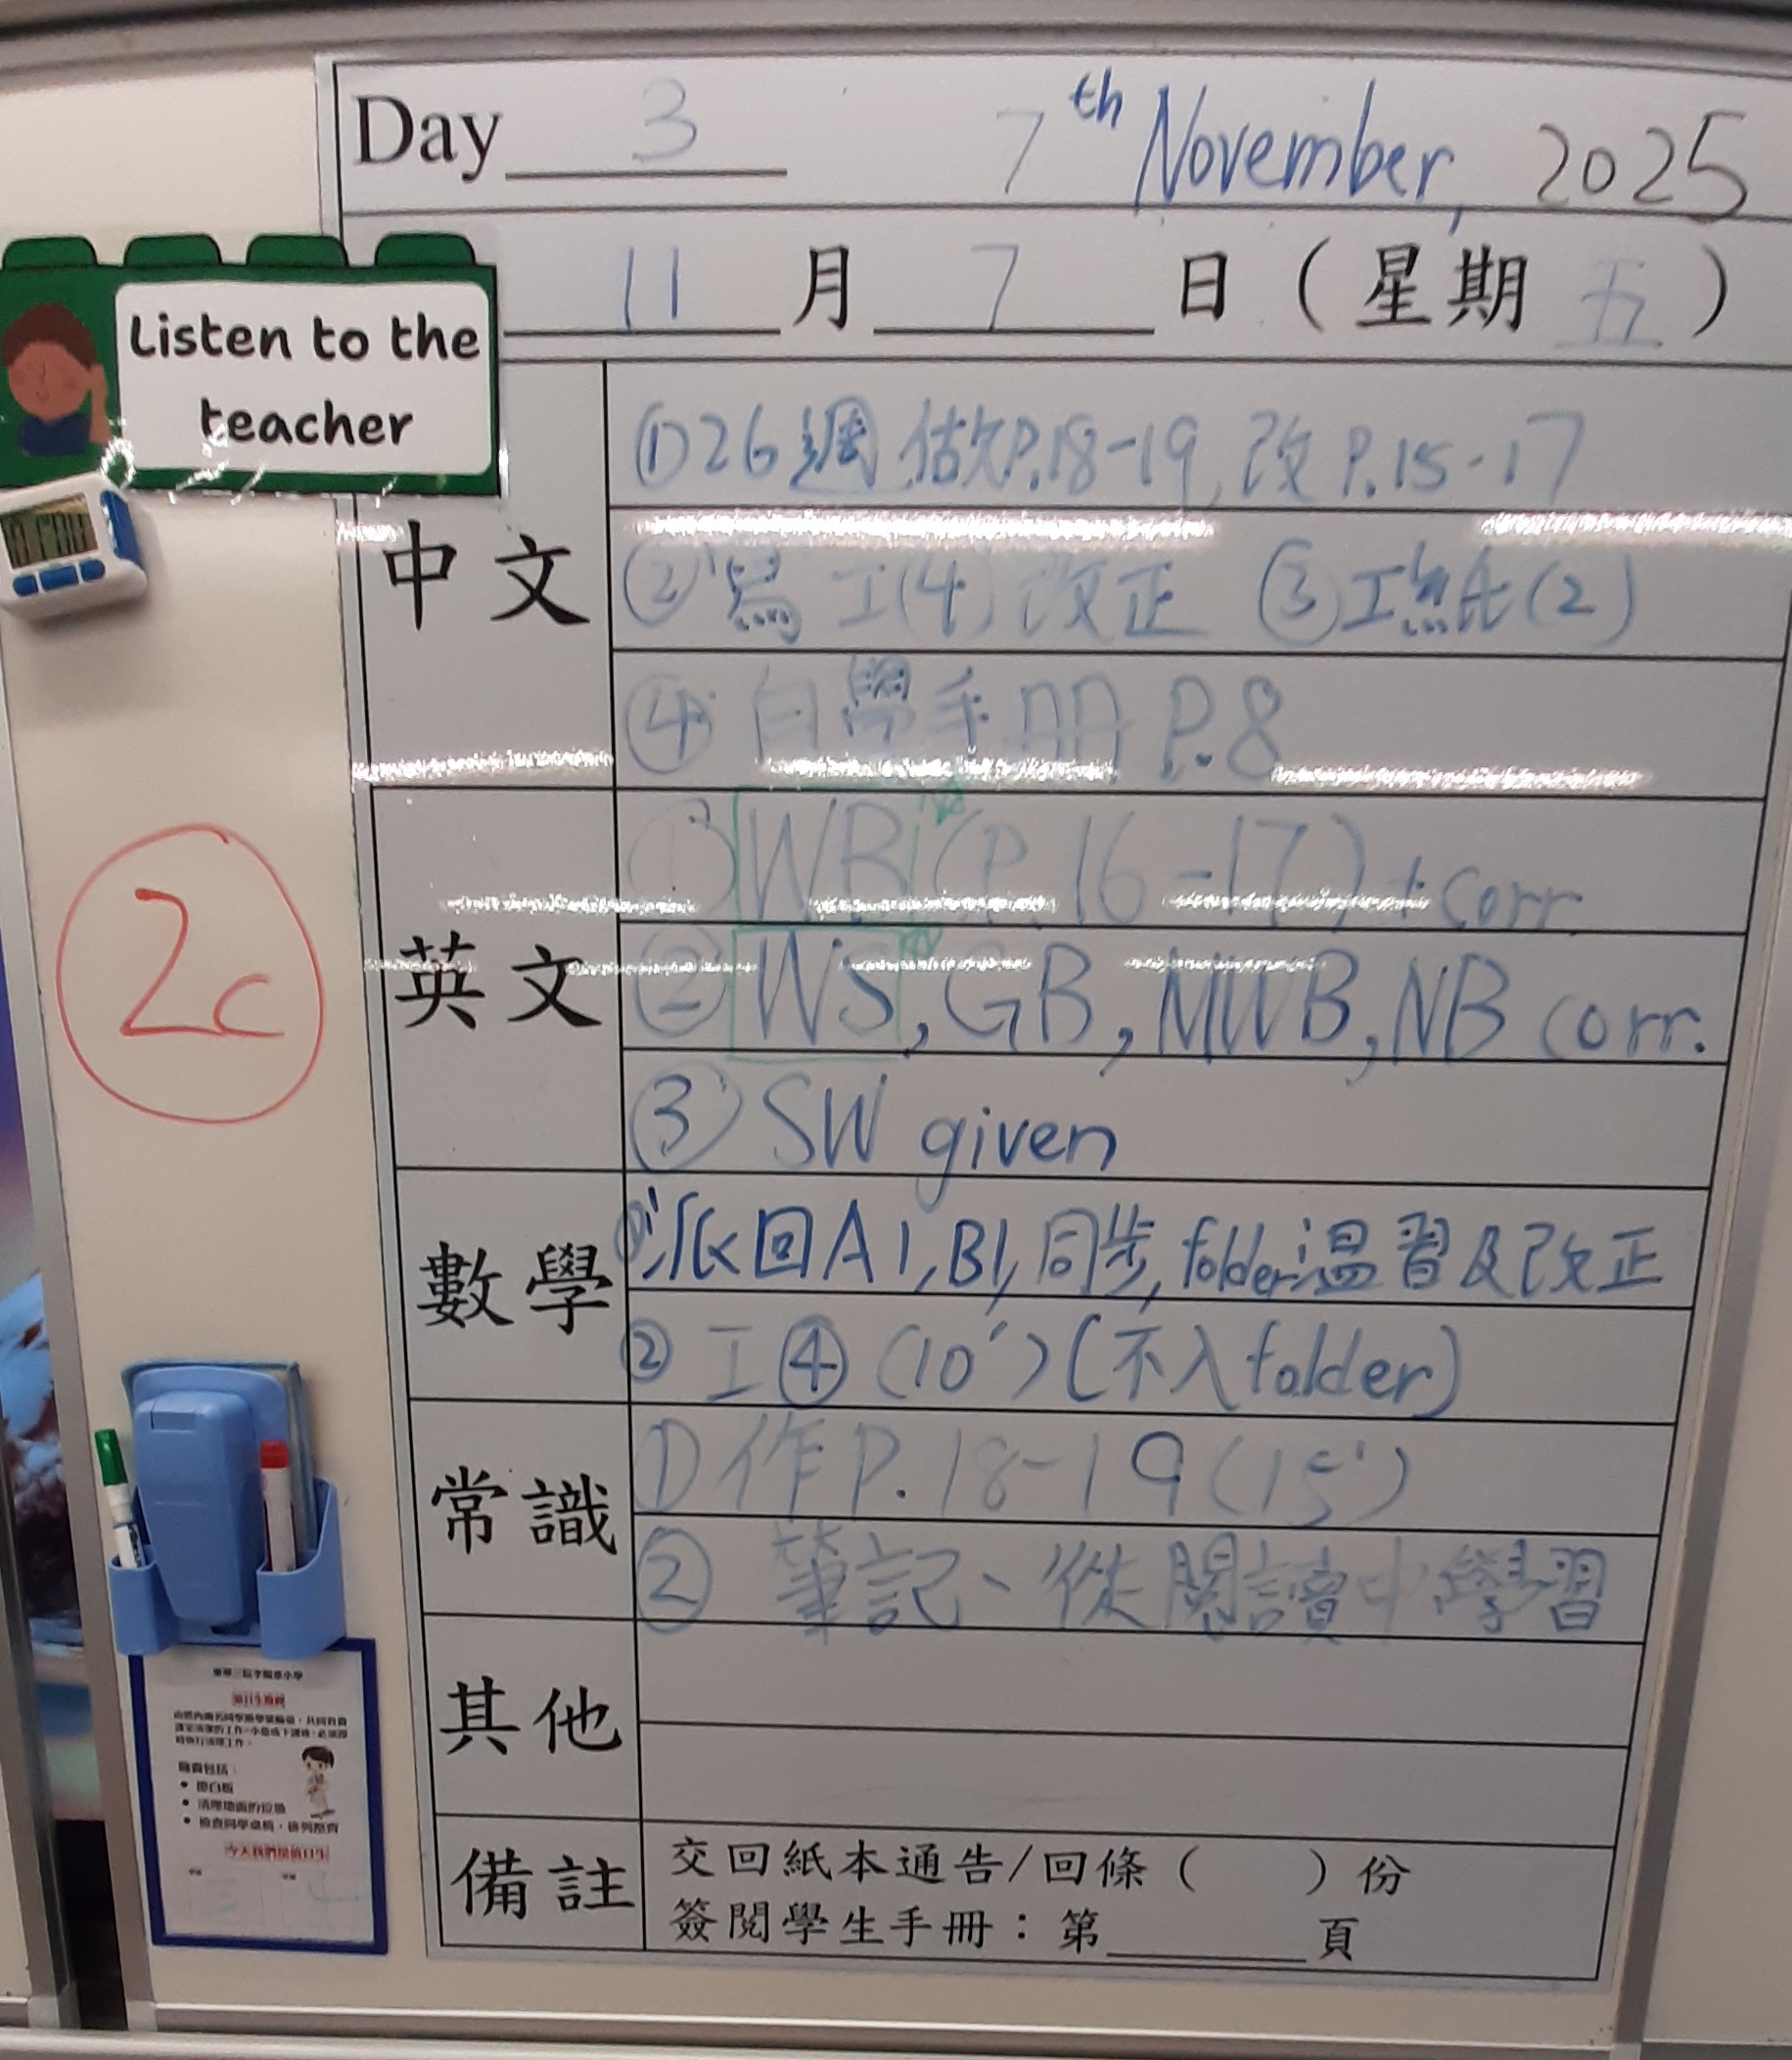 Day 3 7th November, 2025
11 月 7 日 (星期 五)
Listen to the
teacher
中文
① 26週 做P.18-19, 改 P.15-17
② 寫工(4) 改正 ③ 工紙(2)
④ 自學手冊 P.8
英文
① WB (P.16-17) + corr.
② WS, GB, MWB, NB corr.
③ SW given
2c
數學
① 派回A1, B1, 同步, folder溫習及改正
② 工④ (10') (不入folder)
常識
① 作 P.18-19 (15')
② 筆記、從閱讀中學習
其他
備註
交回紙本通告/回條 ( ) 份
簽閱學生手冊:第 頁
職責包括: